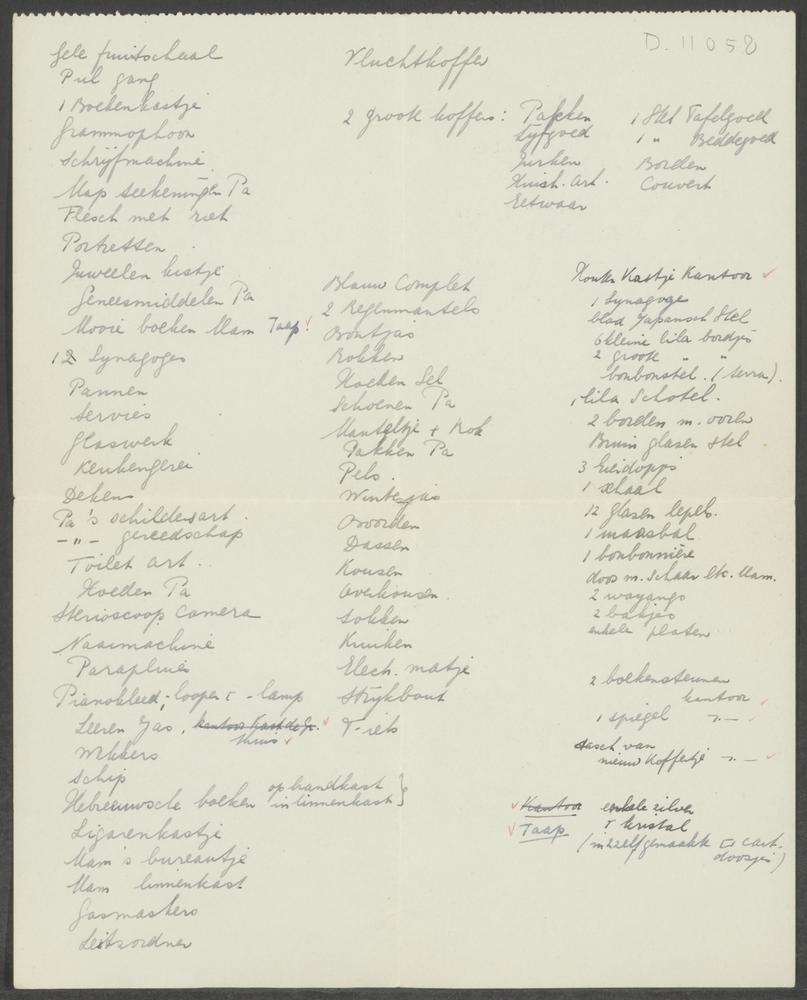 D. 11058
Gele fruitschaal
Pul gang
1 Boekenkastje
Grammophoon
Schrijfmachine
Map teekeningen Pa
Flesch met riet
Portretten
Juweelen kistje
Geneesmiddelen Pa
Mooie boeken Mam Taap!
12 Synagoges
Pannen
Servies
Glaswerk
Keukengerei
Dekens
Pa's schildersart.
— " — gereedschap
Toilet art.
Hoeden Pa
Sterioscoop Camera
Naaimachine
Parapluies
Pianokleed, -looper & -lamp
Leeren Jas, kantoor
thuis ✓
Wekkers
Schip
Hebreeuwsche boeken op handkast
in linnenkast }
Sigarenkastje
Mam's bureautje
Mam linnenkast
Gasmaskers
Leitzordner
Vluchtkoffer
2 groote koffers: Pakken
Lijfgoed
Jurken
Huish. art.
Eetwaar
1 Stel Tafelgoed
1 " Beddegoed
Borden
Couvert
Blauw Complet
2 Regenmantels
Bontjas
Rokken
Hoeken Sel
Schoenen Pa
Manteltje + Rok
Pakken Pa
Pels
Winterjas
Boorden
Dassen
Kousen
Overhemden
Sokken
Kruiken
Elect. matje
Strijkbout
& -iets
Houten Kastje Kantoor ✓
1 Synagoge
blad Japansch Stel
6 kleine lila bordjes
2 groote " "
bonbonstel. (terra).
1 lila Schotel.
2 borden m. ooren
Bruin glasen Stel
3 Eierdopjes
1 schaal
12 glasen lepels.
1 maasbal
1 bonbonnière
doos m. schaar etc. Mam.
2 wayangs
2 bakjes
enkele platen
2 boekensteunen
kantoor ✓
1 spiegel " — ✓
tasch van
nieuw Koffertje " — ✓
✓ Kantoor enkele zilver
✓ Taap & kristal
(in zelfgemaakte cart.
doosjes)